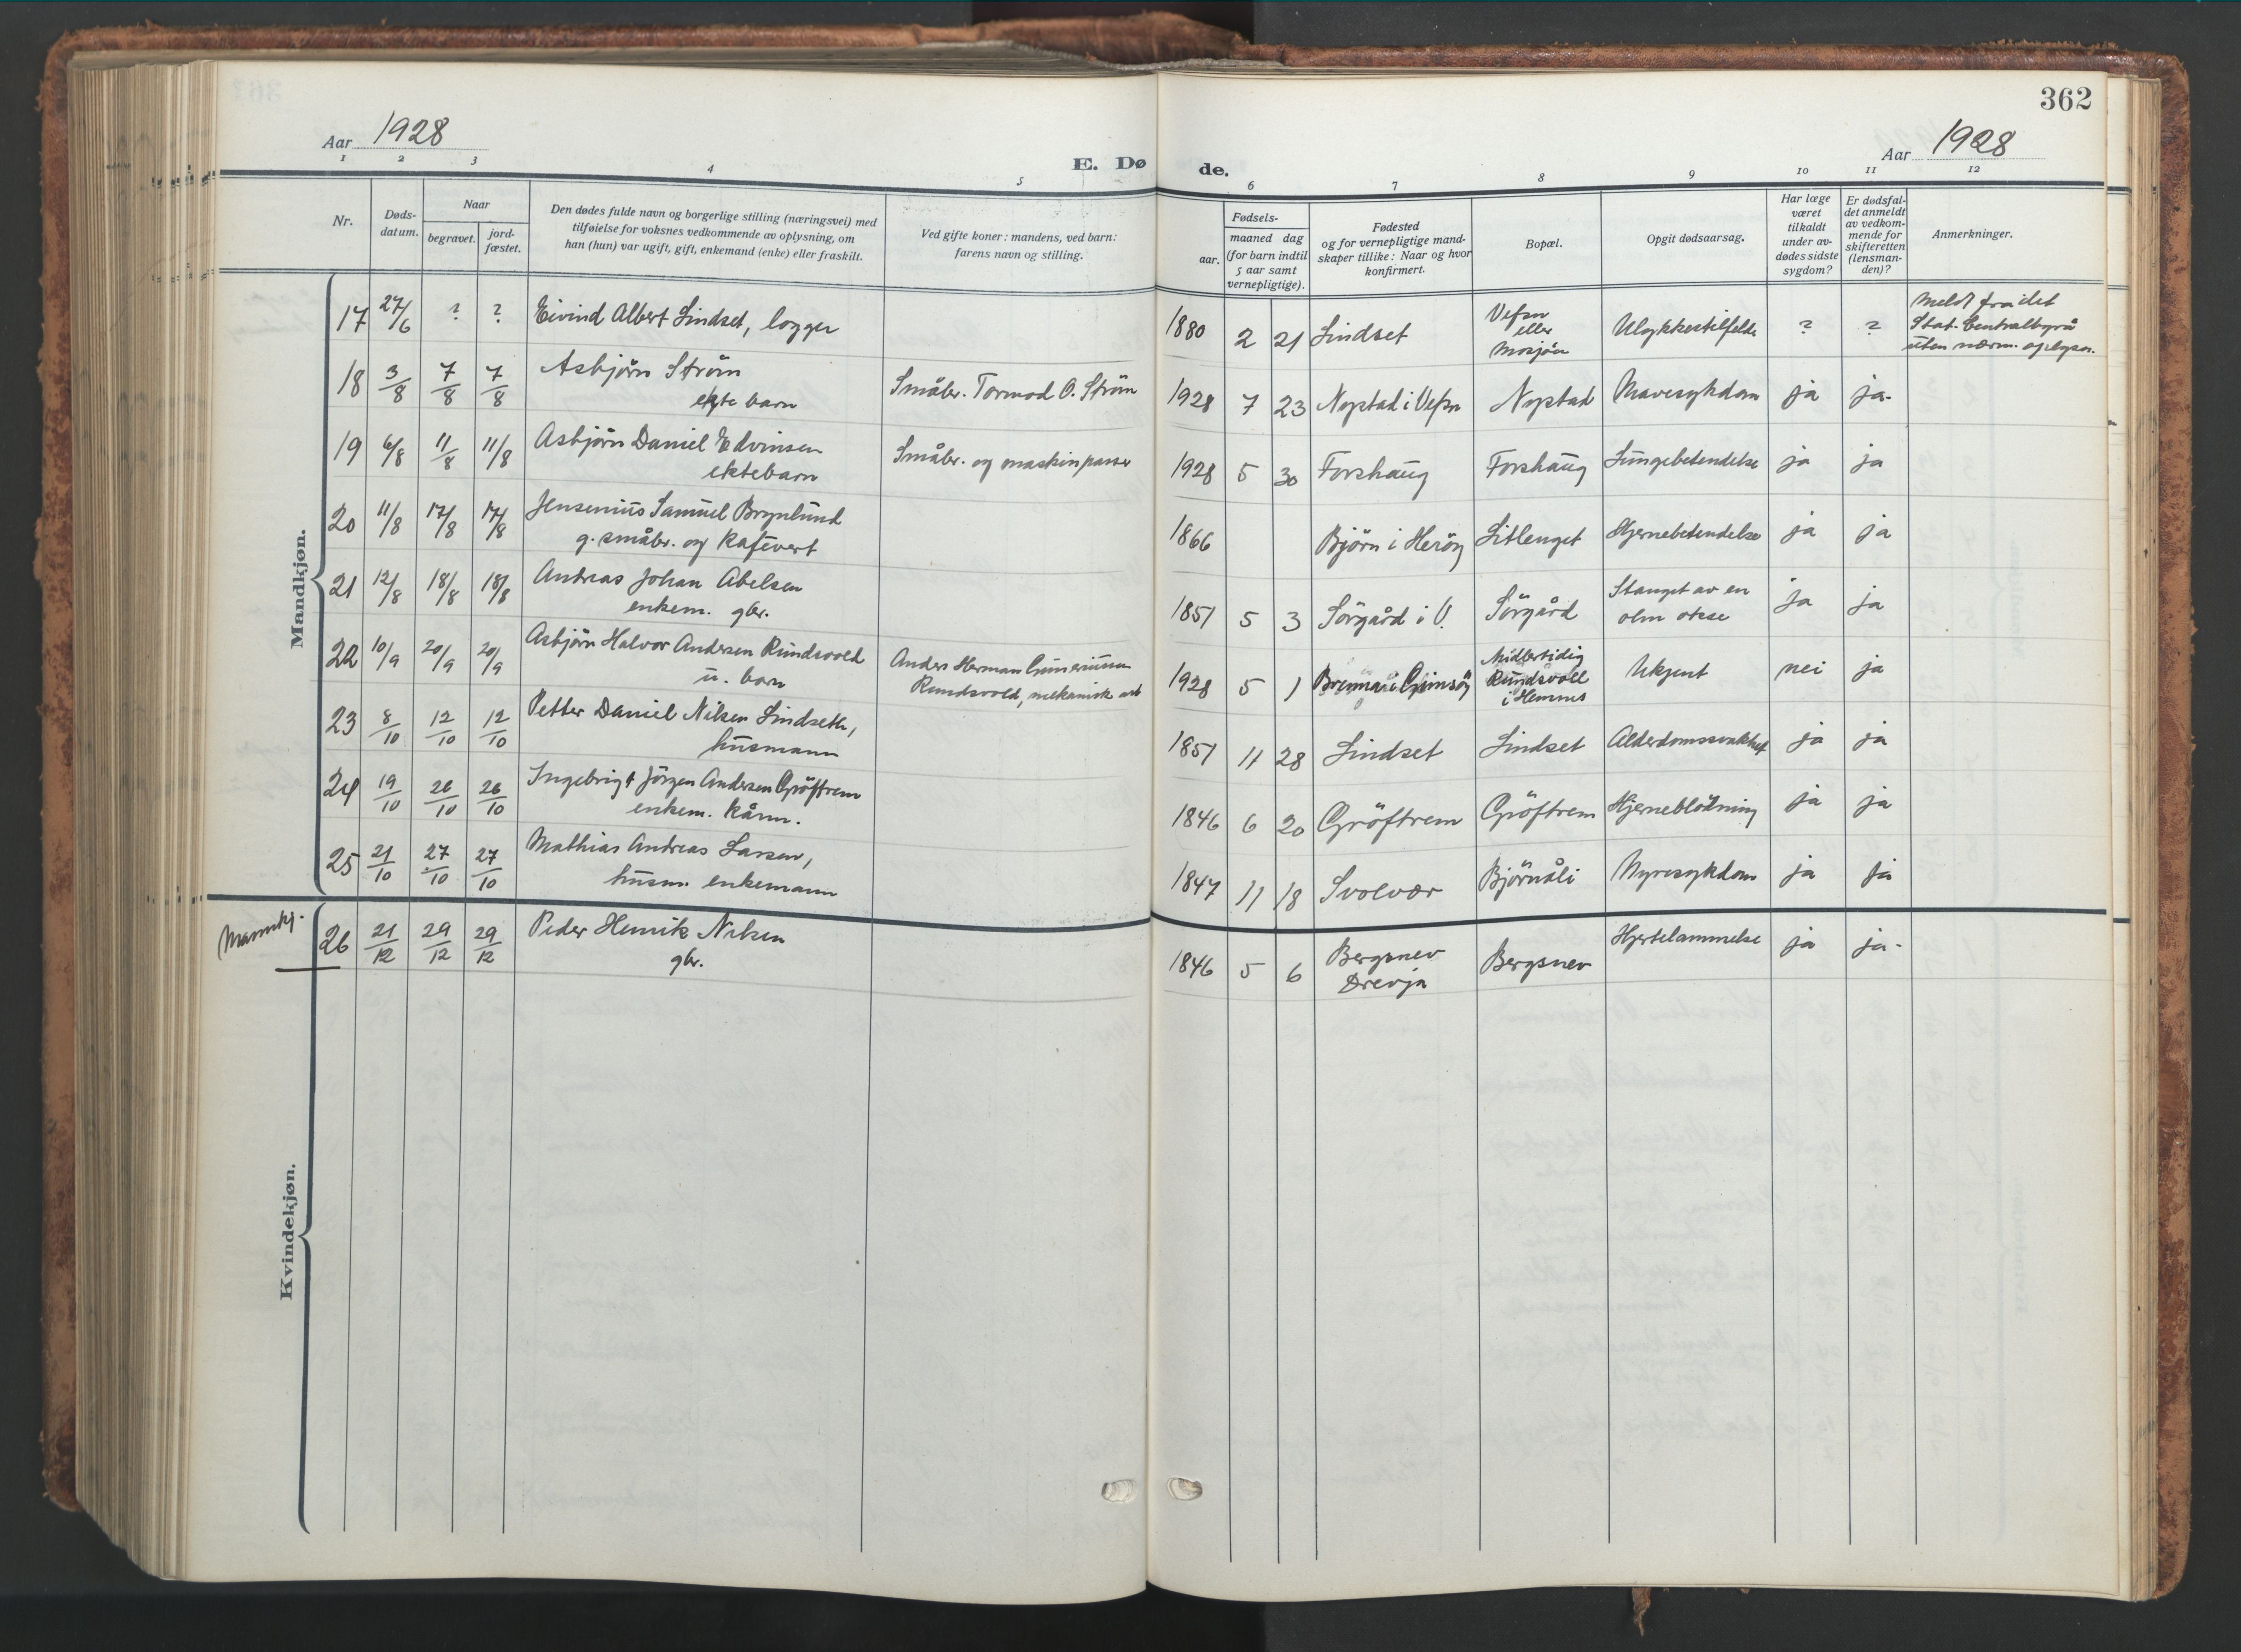 362
Aar 1928
E. Dø
de.
Aar 1928
1 2 3 4 5 6 7 8 9 10 11 12
Nr.
Døds-
datum.
Naar
begravet.
jord-
fæstet.
Den dødes fulde navn og borgerlige stilling (næringsvei) med
tilføielse for voksnes vedkommende av oplysning, om
han (hun) var ugift, gift, enkemand (enke) eller fraskilt.
Ved gifte koner: mandens, ved barn:
farens navn og stilling.
Fødsels-
aar.
maaned dag
(for barn indtil
5 aar samt
vernepligtige).
Fødested
og for vernepligtige mand-
skaper tillike: Naar og hvor
konfirmert.
Bopæl.
Opgit dødsaarsag.
Har læge
været
tilkaldt
under av-
dødes sidste
sygdom?
Er dødsfal-
det anmeldt
av vedkom-
mende for
skifteretten
(lensman-
den)?
Anmerkninger.
Mandkjøn.
17 27/6 ? ? Eivind Albert Lindset, logger 1880 2 21 Lindset Vefsn
eller
Mosjöen Ulykkestilfelde ? ? Meldt fra det
Stat. Centralbyrå
uten nærm. oplysn.
18 3/8 7/8 7/8 Asbjörn Ström
ekte barn Småbr. Tormod O. Ström 1928 7 23 Nystad i Vefsn Nystad Mavesykdom ja ja-
19 6/8 11/8 11/8 Asbjörn Daniel Edvinsen
ektebarn Småbr. og maskinpasser 1928 5 30 Forshaug Forshaug Lungebetendelse ja ja
20 11/8 17/8 17/8 Jensenius Samuel Brynlund
g. småbr. og kafévert 1866 Björn i Heröy Litlenget Hjernebetendelse ja ja
21 12/8 18/8 18/8 Andreas Johan Abelsen
enkem. gbr. 1851 5 3 Sörgård i V. Sörgård Stanget av en
olm okse ja ja
22 10/9 20/9 20/9 Asbjörn Halvor Andersen Rundsvold
u. barn Anders Herman Gunerinssen
Rundsvold, mekanisk arb 1928 5 1 Brenna i Gimsöy Midlertidig
Rundsvoll
i Hemnes Ukjent nei ja
23 8/10 12/10 12/10 Petter Daniel Nilsen Lindseth,
husmann 1851 11 28 Lindset Lindset Alderdomssvakhet ja ja
24 19/10 26/10 26/10 Ingebrigt Jörgen Andersen Gröftrem
enkem. kårm. 1846 6 20 Gröftrem Gröftrem Hjerneblödning ja ja
25 21/10 27/10 27/10 Mathias Andreas Larsen,
husm. enkemann 1847 11 18 Svolvær Björnåli Nyresykdom ja ja
Mannkj.
26 21/12 29/12 29/12 Peder Henrik Nilsen
gbr. 1846 5 6 Bergsnev
Drevja Bergsnev Hjertelammelse ja ja-
Kvindekjøn.